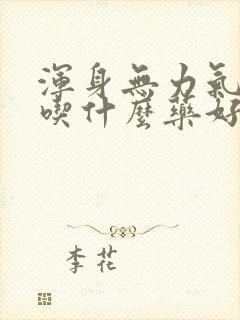 渾身無力氣
喫什麼藥好
李花